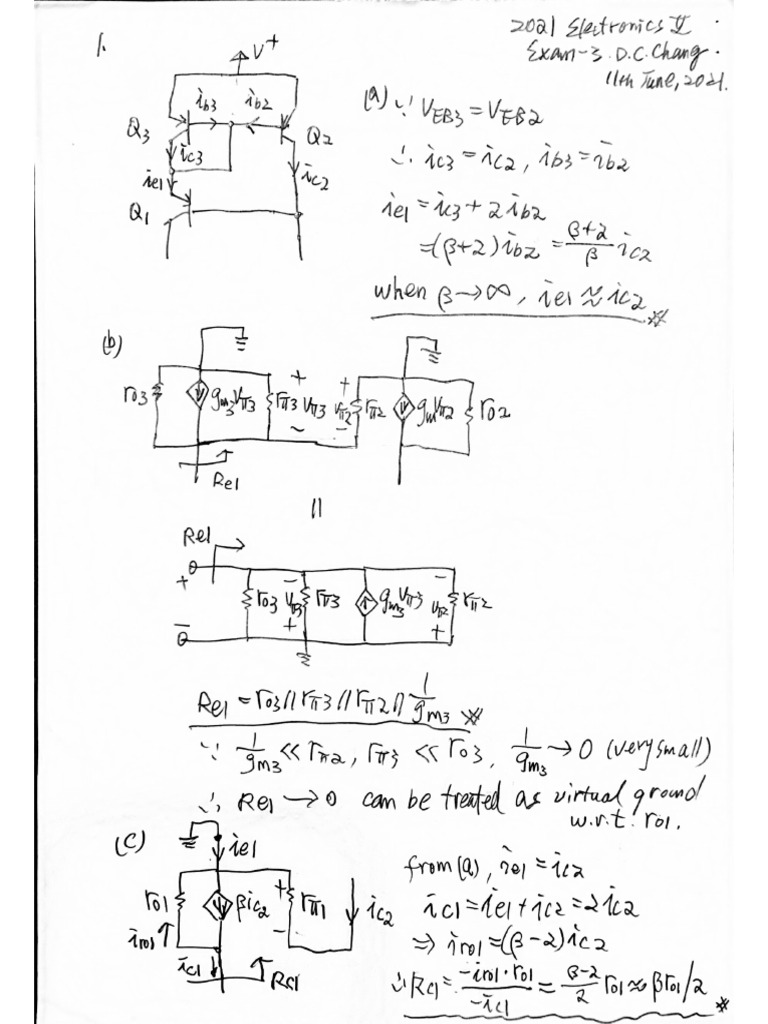 2021 Electronics II
Exam-3. D.C. Chang.
11th June, 2021.
1.
V+
ib3 ib2
Q3 Q2
ic3
ie1 ic2
Q1
(a) ∵ VEB3 = VEB2
∴ ic3 = ic2, ib3 = ib2
ie1 = ic3 + 2ib2
= (β+2) ib2 = β+2/β ic2
when β→∞, ie1 ≈ ic2 ※
(b)
ro3 gm3Vπ3 rπ3 Vπ3 Vπ2 rπ2 gmVπ2 ro2
+ +
− −
Re1
||
Re1
+ − −
ro3 Vπ3 rπ3 gm3Vπ3 Vπ2 rπ2
− + +
Re1 = ro3 // rπ3 // rπ2 // 1/gm3 ※
∵ 1/gm3 << rπ2, rπ3 << ro3, 1/gm3 → 0 (very small)
∴ Re1 → 0 can be treated as virtual ground
w.r.t. ro1.
(c)
ie1
ro1 βic2 + rπ1 ic2
iro1 −
ic1 Rc1
from (a), ie1 = ic2
ic1 = ie1 + ic2 = 2ic2
⇒ iro1 = (β−2) ic2
∴ Rc1 = −iro1·ro1/−ic1 = β−2/2 ro1 ≈ βro1/2 ※